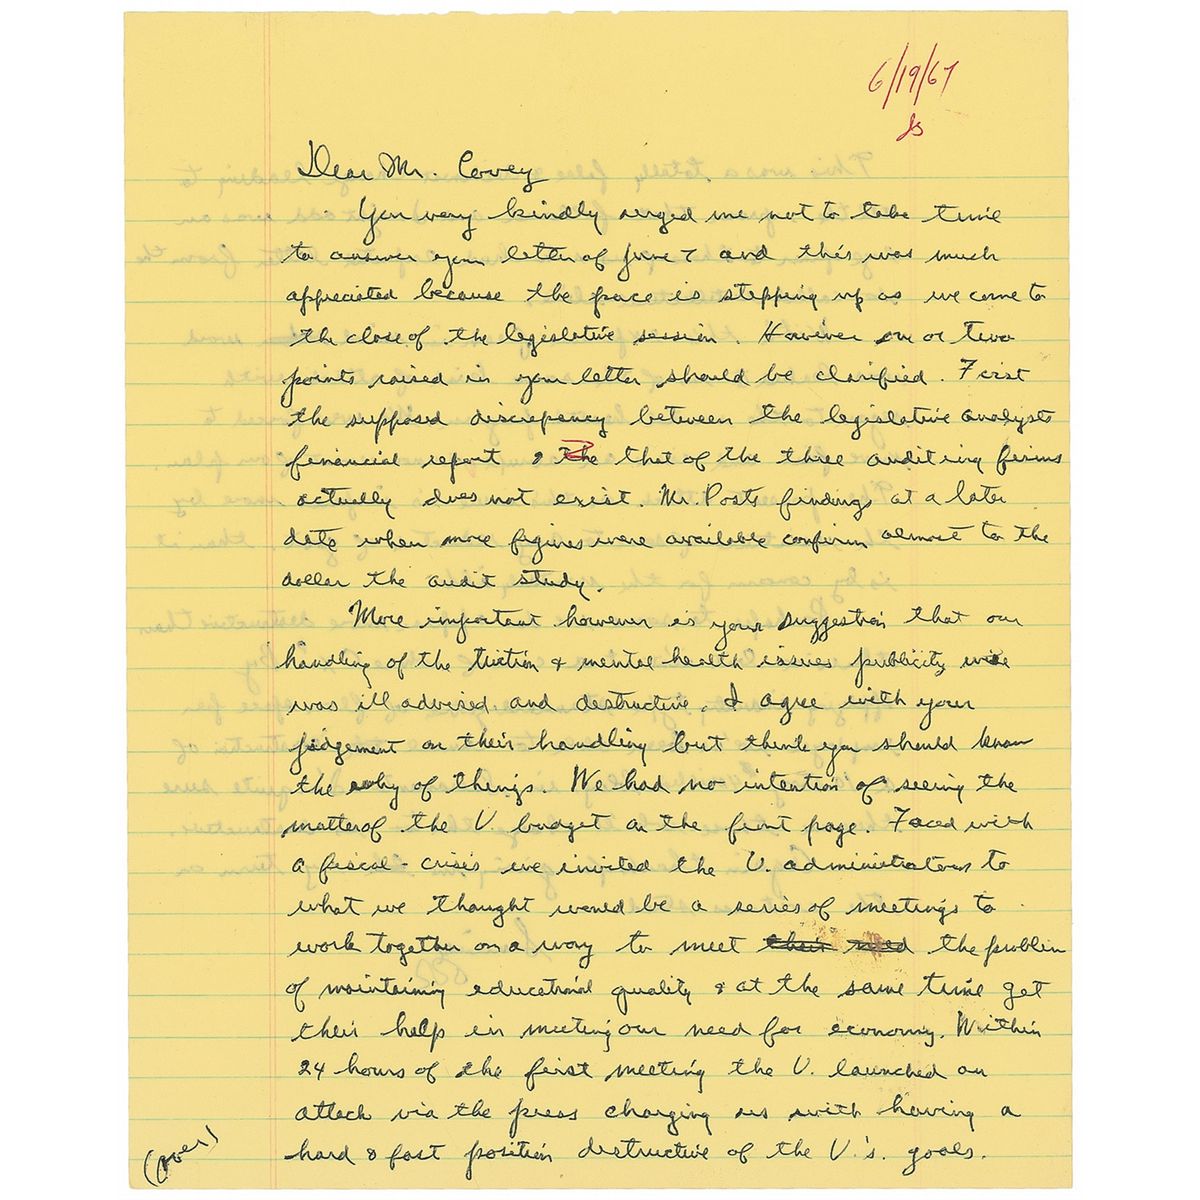 6/19/67
Js
Dear Mr. Covey
You very kindly urged me not to take time
to answer your letter of June 7 and this was much
appreciated because the pace is stepping up as we come to
the close of the legislative session. However one or two
points raised in your letter should be clarified. First
the supposed discrepency between the legislative analysts
financial report & the that of the three auditing firms
actually does not exist. Mr. Posts findings at a later
date when more figures were available confirm almost to the
dollar the audit study.
More important however is your suggestion that our
handling of the tuition & mental health issues publicity wise
was ill advised and destructive. I agree with your
judgement on their handling but think you should know
the why of things. We had no intention of seeing the
matter of the U budget on the front page. Faced with
a fiscal-crisis we invited the U. administrators to
what we thought would be a series of meetings to
work together on a way to meet their need the problem
of maintaining educational quality & at the same time get
their help in meeting our need for economy. Within
24 hours of the first meeting the U. launched an
attack via the press charging us with having a
hard & fast position destructive of the U.'s. goals.
(over)